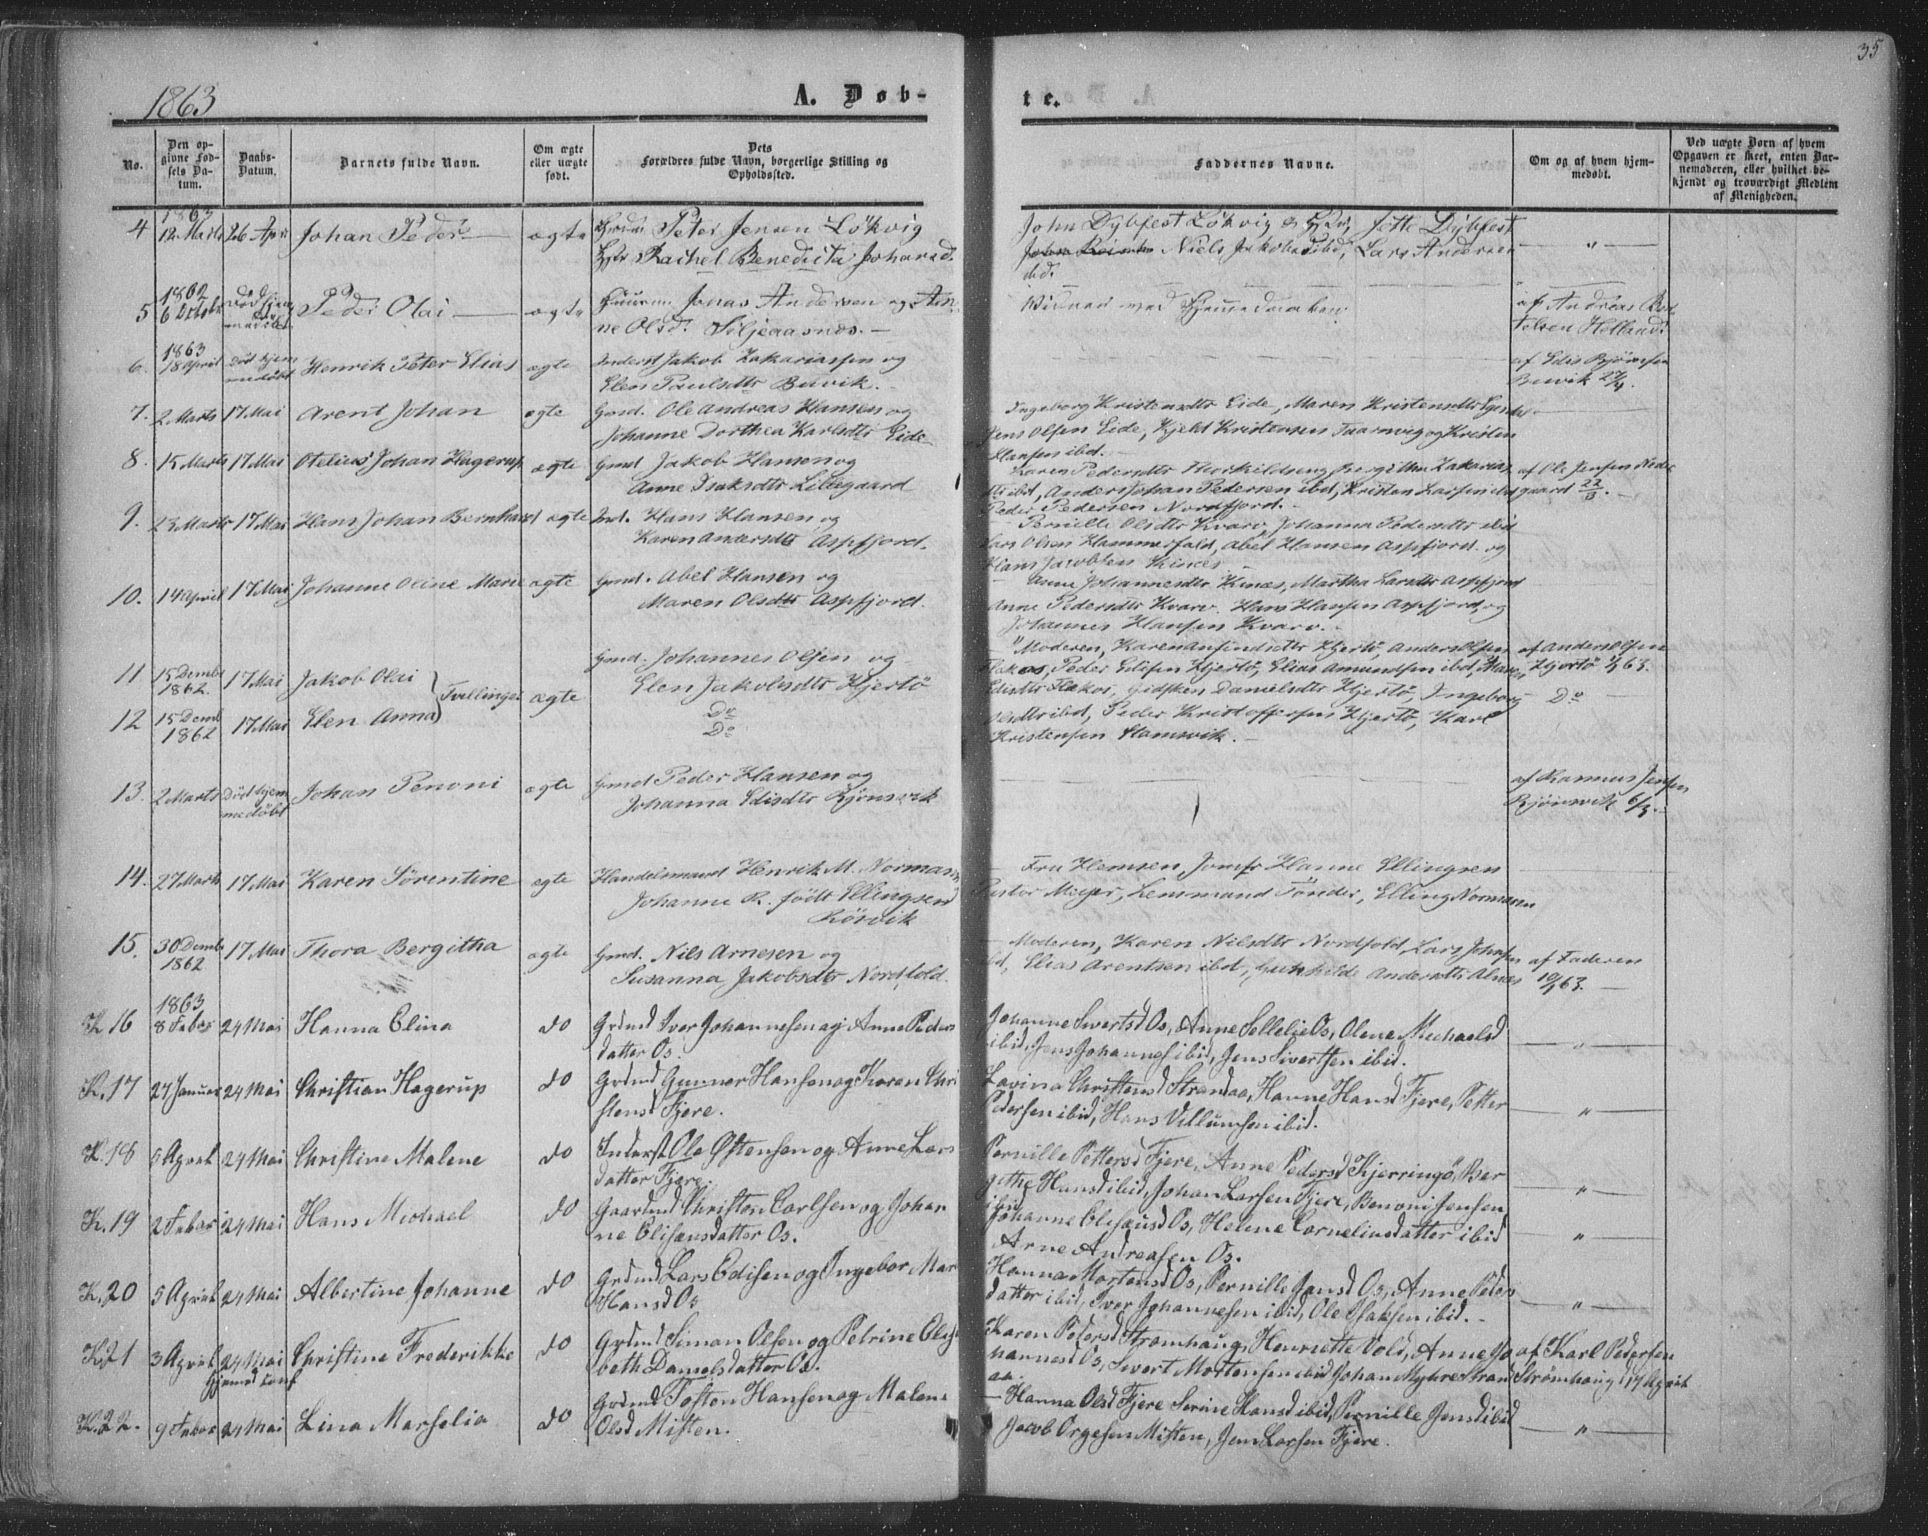 35
1863
A. Døb-
te.
No.
Den op-
givne Fød-
sels Da-
tum.
Daabs-
Datum.
Barnets fulde Navn.
Om ægte
eller uægte
født.
Dets
Forældres fulde Navn, borgerlige Stilling og
Opholdssted.
Faddernes Navne.
Om og af hvem hjem-
medøbt.
Ved uægte Børn af hvem
Opgaven er skeet, enten Bar-
nemoderen, eller hvilket be-
kjendt og troværdigt Medlem
af Menigheden.
1863
4 12 Marts 26 Apr Johan Peder ægte Peter Jensen Løkvig
Rachel Benedicta Johansd.
John Dybfest Løkvig
Niels Jakobs ibid, Lars Andersen
ibd. "
1862
5 6 Peder Olai ægte Jonas Andersen og An-
ne Olsd. Siljeaasnes.
af Andreas
Holland
1863
6. 18 April Død hjem
medøbt Henrik Peter Elias ægte Inderst Jakob Zakariassen og
Elen Paulsdtr Buvik.
af Edis Bjørnsen
Buvik 27/4.
7. 2 Marts 17 Mai Arent Johan ægte Gmd. Ole Andreas Hansen og
Johanne Dorthea Karlsdtr Eide
Ingeborg Kristensdtr Eide, Maren Kristensdtr
Jens Olsen Eide, Kjeld Kristensen Taarnvig og Kristen
Hansen ibd.
8. 15 Marts 17 Mai Otelius Johan Hagerup ægte Gmd Jakob Hansen og
Anne Isaksdtr Lillegaard
Karen Pedersdtr Thorkildseng, Bergitha Zakarias
dtr ibd, Anders Johan Pedersen ibd, Kristen Larsen ibd
Peder Pedersen Nordfjord.
af Ole Jensen Nede
gaard 22/3.
9. 23 Marts 17 Mai Hans Johan Bernhard ægte Ind. Hans Hansen og
Karen Andersdtr Aspfjord.
Pernille Olsdtr Kvarv, Johanna Pedersdtr ibd
Lars Olsen Hammerfald, Abel Hansen Aspfjord og
Hans Jacobsen Kines
10. 14 April 17 Mai Johanne Oline Marie ægte Gmd. Abel Hansen og
Maren Olsdtr Aspfjord.
Anne Johannesdtr Kines, Martha Larsdtr Aspfjord
Anne Pedersdtr Kvarv, Hans Hansen Aspfjord og
Johannes Hansen Kvarv.
11 15 Decmb
1862. 17 Mai Jakob Olai Tvillinger ægte Gmd. Johannes Olsen og
Elen Jakobsdtr Hjertø
12 15 Decmb
1862 17 Mai Elen Anna Do
Do
Moderen, Karen Amundsdtr Hjertø, Anders Olsen
Flakos, Peder Edisen Hjertø, Elias Amundsen ibd, Maren
Edisdtr Flakos, Gidsken Danielsdtr Hjertø, Ingeborg
Olsdtr ibd, Peder Kristoffersen Hjertø, Karl
Kristensen Stamsvik.
af Anders Olsen
Hjertø 63.
Do
13. 2 Marts Død hjem
medøbt Johan Penoni ægte Gmd Peder Hansen og
Johanna Edisdtr Bjørnsvik
af Rasmus Jensen
Bjørnsvik 6/3.
14. 27 Marts 17 Mai Karen Sørentine ægte Handelsmand Henrik M. Normann
Johanne R. født Ellingsen
Løsvik
Fru Hemsen, Jomfr Hanne Ellingsen
Pastor Meyer, Lensmand Tønder, Elling Normann
15. 30 Decmb
1862 17 Mai Thora Bergitha ægte Gmd. Nils Arnesen og
Susanna Jakobsdtr Nordfold.
Moderen, Karen Nilsdtr Nordfold, Lars Johnsen
ibd, Elias Arentsen ibd, Gunhilde Andersdtr Alnes
af Faderen
10/1 63.
1863
K. 16 8 Febar 24 Mai Hanna Elina do Grdmd Iver Johannesen og Anne Peders
datter Os.
Johanne Sivertsd Os, Anne Sellelie Os, Olene Michaelsd
ibid, Jens Johannes ibid, Jens Sivertsen ibid.
"
K. 17 27 Januar 24 Mai Christian Hagerup do Grdmd Gunner Hansen og Karen Chri
stensd Fjere.
Lovina Christensd Strandaa, Hanne Hansd Fjere, Petter
Pedersen ibid, Hans Villumsen ibid.
"
K. 18 5 April 24 Mai Christine Malene do Inderst Ole Østensen og Anne Lars
datter Fjære.
Pernille Pettersd Fjere, Anne Pedersd Kjerringø, Ber
githe Hansd ibid, Johan Larsen Fjere, Benoni Jensen
ibid
"
K. 19 2 Febar 24 Mai Hans Michael do Gaardmd Christen Carlsen og Johan
ne Elisæusdatter Os.
Johanne Elisæusd Os, Helene Corneliusdatter ibid
Arne Andreasen Os.
"
K. 20 5 April 24 Mai Albertine Johanne do Grdmd Lars Edisen og Ingebor Mar
Hansd Os
Hanna Mortensd Os, Pernille Jensd Os, Anne Peders
datter ibid, Iver Johannesen ibid, Ole Isaksen ibid.
"
K. 21 3 April 24 Mai
Hjemd conf Christine Frederikke do Grdmd Simon Olsen og Petrine Elisa
beth Danielsdatter Os.
Karen Pedersd Strømhaug, Henriette Vold, Anne Jo
hannesd Os, Sivert Mortensen ibid Johan Myhre Strand
aa.
af Karl Pedersen
Strømhaug d 17 April
K. 22. 9 Febar 24 Mai Lina Marselia do Grdmd Tosten Hansen og Malene
Olsd Misten.
Hanna Olsd Fjere Serine Hansd ibid, Pernille Jensd ibid
Jacob Ørgesen Misten, Jens Larsen Fjere.
"